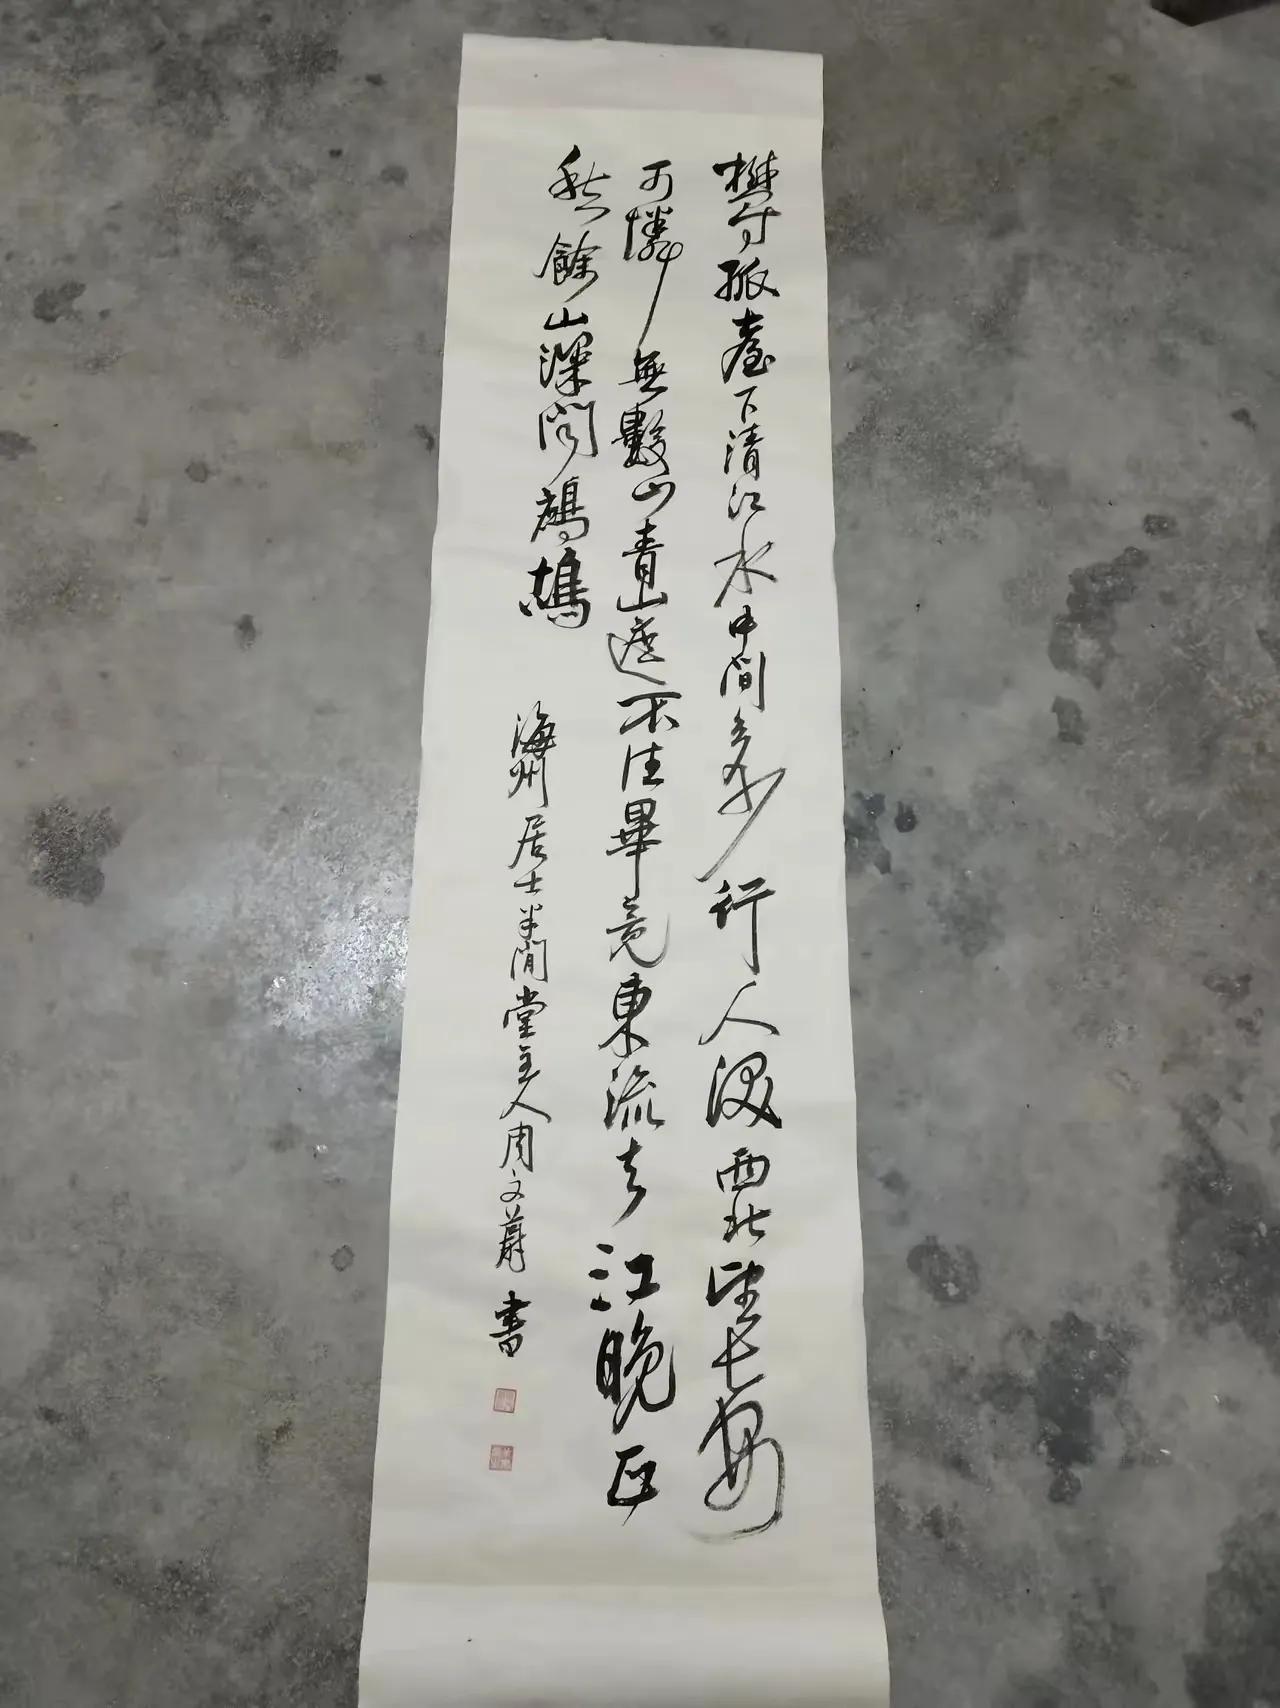 鬱孤臺下清江水中間多少行人淚西北望長安
可憐無數山青山遮不住畢竟東流去江晚正
愁餘山深聞鷓鴣
海州居士半閒堂主人周文蔚書